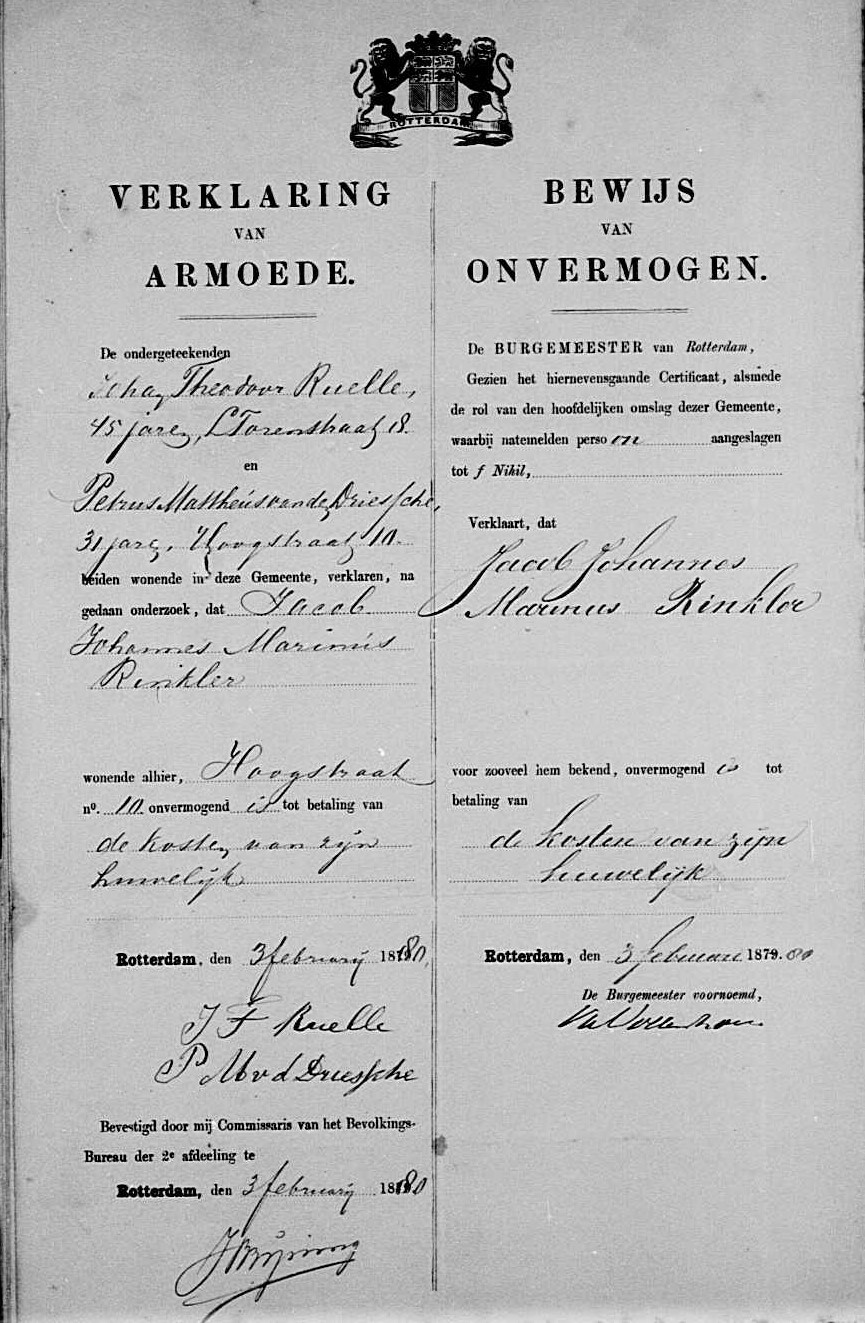 ROTTERDAM
VERKLARING
VAN
ARMOEDE.
De ondergeteekenden
Johan Theodoor Ruelle,
45 jaren, L Torenstraat 18.
en
Petrus Mattheus van den Driessche,
31 jaren, Hoogstraat 10.
beiden wonende in deze Gemeente, verklaren, na
gedaan onderzoek, dat Jacob
Johannes Marinus
Rinkler
wonende alhier, Hoogstraat
no. 10 onvermogend is tot betaling van
de kosten van zijn
huwelijk
Rotterdam, den 3 february 1880.
J T Ruelle
P M v d Driessche
Bevestigd door mij Commissaris van het Bevolkings-
Bureau der 2e afdeeling te
Rotterdam, den 3 february 1880
BEWIJS
VAN
ONVERMOGEN.
De BURGEMEESTER van Rotterdam,
Gezien het hiernevensgaande Certificaat, alsmede
de rol van den hoofdelijken omslag dezer Gemeente,
waarbij natemelden persoon aangeslagen
tot f Nihil,
Verklaart, dat
Jacob Johannes
Marinus Rinkler
voor zooveel hem bekend, onvermogend is tot
betaling van
de kosten van zijn
huwelijk
Rotterdam, den 3 februari 1879. 80
De Burgemeester voornoemd,